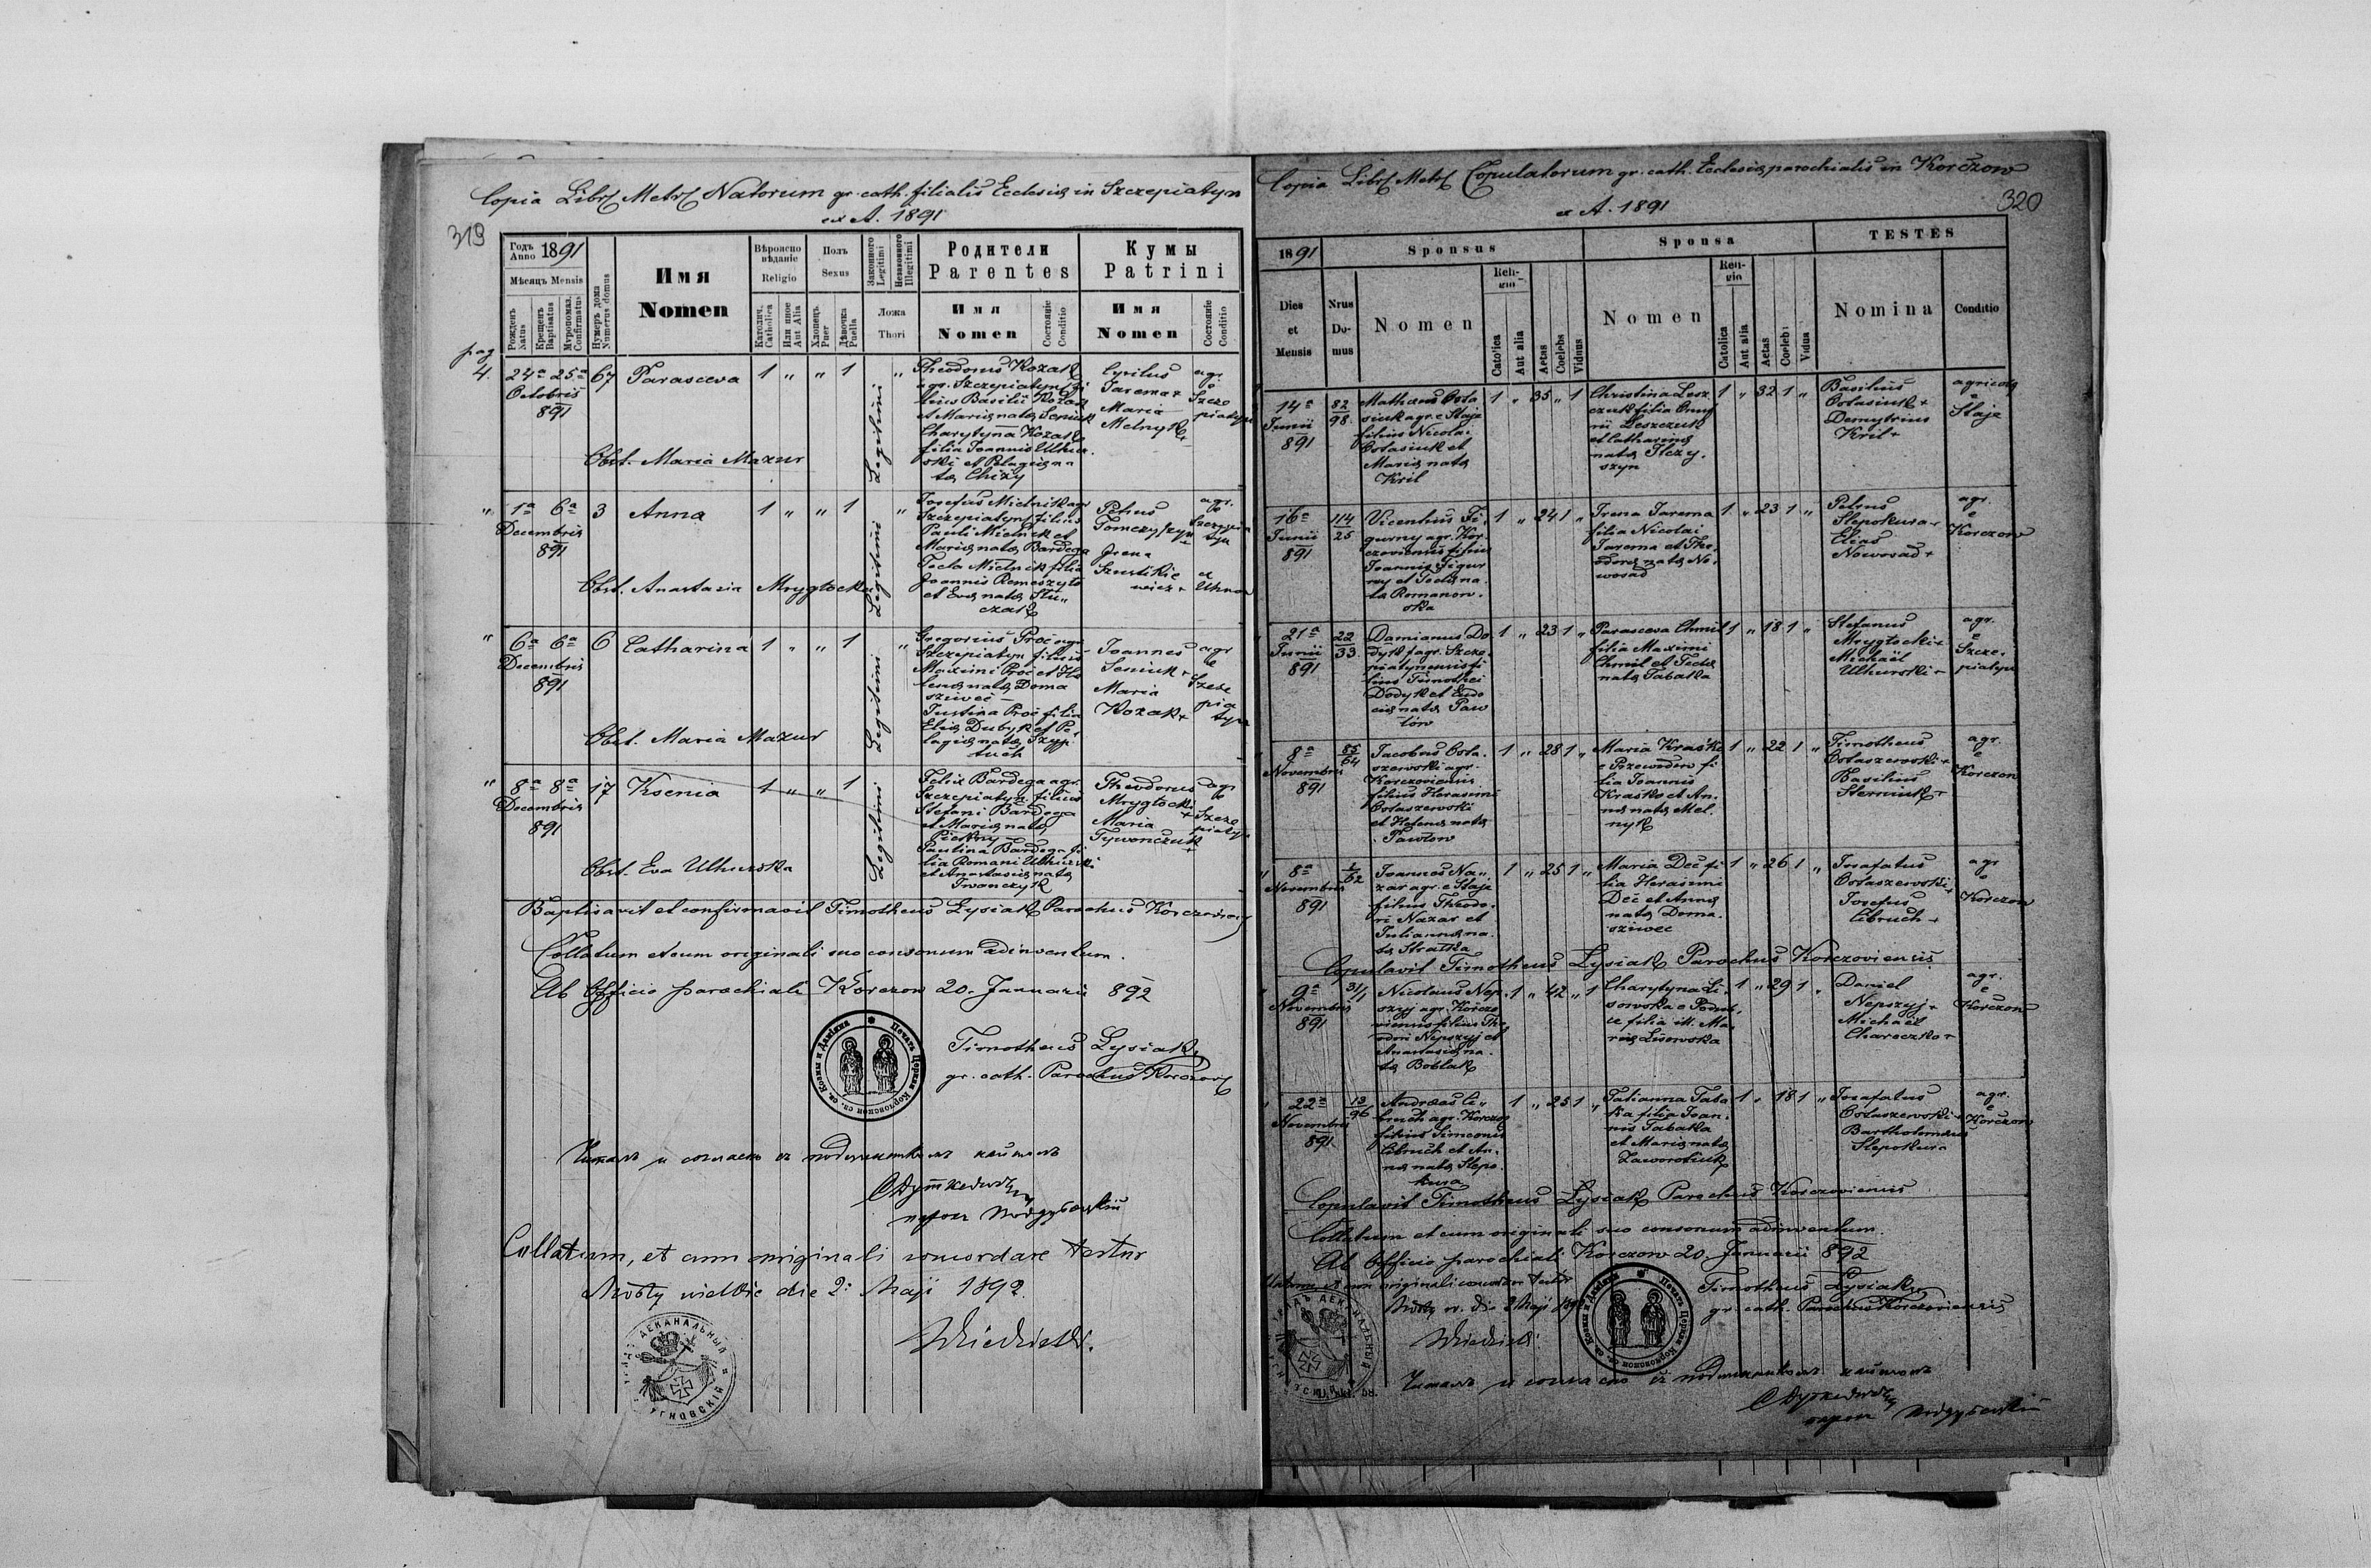 Copia Libr Metr Natorum gr. cath. filialis Ecclesiæ in Szczepiatyn
ex A. 1891
319
Годъ
Anno 1891
Мѣсяцъ Mensis
Рожденъ
Natus
Крещенъ
Baptisatus
Мѵропомаз.
Confirmatus
Нумеръ дома
Numerus domus
Имя
Nomen
Вѣроиспо
вѣданіе
Religio
Католич.
Catholica
Или иное
Aut Alia
Полъ
Sexus
Хлопецъ
Puer
Дѣвочка
Puella
Законного
Legitimi
Незаконного
Illegitimi
Ложа
Thori
Родители
Parentes
Имя
Nomen
Состояніе
Conditio
Кумы
Patrini
Имя
Nomen
Состояніе
Conditio
pag
4.
24a 25a
Octobris
891
67
Parasceva
1 " " 1
Legitimi
"
Theodorus Kozak
agr. Szczepiatyn fi
lius Basilii Kozak
et Mariæ natæ Seniuk
Charytyna Kozak
filia Joannis Uhnu
ski et Pelagiæ na
tæ Chiży
Cyrilus
Jarema +
Maria
Melnyk +
agr.
e
Szcze
piatyn
Obst. Maria Mazur
" 1a 6a
Decembris
891
3
Anna
1 " " 1
Legitimi
"
Josefus Mielnik agr
Szczepiatyn filius
Pauli Mielnik et
Mariæ natæ Bardega
Tecla Mielnik filia
Joannis Romaszyto
et Evæ natæ Slu
czak
Petrus
Tomczyszyn
Irena
Szustkie
wicz +
agr.
e
Szczepia
tyn
ex
Uhnow
Obst. Anastasia Mrygłocka
" 6a 6a
Decembris
891
6
Catharina
1 " " 1
Legitimi
"
Gregorius Proć agr
Szczepiatyn filius
Maximi Proć et He
lenæ natæ Doma
sziweć
Justina Proć filia
Eliæ Dubyk et Pe
lagiæ natæ Szyp
tuch
Joannes
Seniuk +
Maria
Kozak +
agr
e
Szcze
pia
tyn
Obst. Maria Mazur
" 8a 8a
Decembris
891
17
Ksenia
1 " " 1
Legitimi
Felix Bardega agr.
Szczepiatyn filius
Stefani Bardega
et Mariæ natæ
Paulina Bardega fi
lia Romani Uhnurski
et Anastasiæ natæ
Iwonczyk
Theodorus
Mrygłocki
+
Maria
Tywonczuk
+
agr
e
Szcze
piatyn
Obst. Eva Uhnurska
Baptisavit et confirmavit Timotheus Łysiak Parochus Korczow
Collatum et cum originali suo consonum adinventum.
Ab Officio parochiali Korczow 20. Januarii 892
Печать Церкви Корчовской св. Козмы и Даміяна
Timotheus Łysiak
gr. cath. Parochus Korczov
Читалъ и согласно съ подлинникомъ нашелъ
парох
Collatum, et cum originali concordare testor
Mosty wielkie die 2. Maji 1892.
ДЕКАНАЛЬНЫЙ
УГНОВСКІЙ
Copia Libr Metr Copulatorum gr. cath. Ecclesiæ parochialis in Korczow
ex A. 1891
320
1891
Dies
et
Mensis
Nrus
Do-
mus
Sponsus
Nomen
Reli-
gio
Catolica
Aut alia
Aetas
Coelebs
Viduus
Sponsa
Nomen
Reli-
gio
Catolica
Aut alia
Aetas
Coelebs
Vidua
TESTES
Nomina
Conditio
14a
Junii
891
82
98.
Mathæus Osta
siuk agr. e Staje
filius Nicolai
Ostasiuk et
Mariæ natæ
Kril
1 " 35 " 1
Christina Lesz
czuk filia Onuf
rii Leszczuk
et Catharinæ
natæ Ilczy.
szyn
1 " 32 1 "
Basilius
Ostasiuk +
Demytrius
Kril +
agricola
e
Staje
16a
Junii
891
114
25
Vicentius Fi.
gurny agr. Kor.
czoviensis filius
Joannis Figur
ny et Teclæ na.
tæ Romanow.
ska
1 " 24 1 "
Irena Jarema
filia Nicolai
Jarema et The.
odoræ natæ No.
wosad
1 " 23 1 "
Petrus
Slepokura +
Elias
Nowosad +
agr.
e
Korczow
21a
Junii
891
22
33.
Damianus Do
dyk agr. Szcze.
piatynensis fi
lius Timothei
Dodyk et Eudo
ciæ natæ Paw
łów
1 " 23 1 "
Parasceva Chmil
filia Maximi
Chmil et Teclæ
natæ Tabaka
1 " 18 1 "
Stefanus
Mrygłocki +
Michaël
Uhnurski +
agr.
e
Szcze.
piatyn
8a
Novembris
891
85
64
Jacobus Osta.
szewski agr.
Korczoviensis
filius Herasimi
Ostaszewski
et Helenæ natæ
Pawłow
1 " 28 1 "
Maria Kraśko
e Przewodow fi
lia Joannis
Kraśko et An.
næ natæ Mel.
nyk
1 " 22 1 "
Timotheus
Ostaszewski +
Basilius
Sterniuk +
agr.
e
Korczow
8a
Novembris
891
1
62
Joannes Na.
zar agr. e Staje
filius Theodo.
ri Nazar et
Julianna na.
tæ Stratka
1 " 25 1 "
Maria Deć fi
lia Herasimi
Deć et Annæ
natæ Doma.
sziwec
1 " 26 1 "
Josafatus
Ostaszewski +
Josefus
Cibruch +
agr
e
Korczow
Copulavit Timotheus Łysiak Parochus Korczoviensis
9a
Novembris
891
31/1
Nicolaus Nep.
szyj agr. Korczo
viensis filius The
odori Nepszyj et
Anastasiæ na.
tæ Boblak
1 " 42 " 1
Charytyna Li.
sowska e Podub.
ce filia ill. Ma.
riæ Lisowska
1 " 29 1 "
Daniel
Nepszyj +
Michaël
Chareczko +
agr.
e
Korczow
22a
Novembris
891
13
96
Andreas Ci.
bruch agr. Korczow
filius Simeonis
Cibruch et An.
næ natæ Slepo.
kura
1 " 25 1 "
Tatianna Taba
ka filia Joan.
nis Tabaka
et Mariæ natæ
Zaworotiuk
1 " 18 1 "
Josafatus
Ostaszewski +
Bartholomæus
Slepokura
agr.
e
Korczow
Copulavit Timotheus Łysiak Parochus Korczoviensis
Collatum et cum originali suo consonum adinventum.
Ab Officio parochiali Korczow 20. Januarii 892
Collatum et cum originali concordare testor
Mosty w. die 2 Maji 892
Timotheus Łysiak
gr. cath. Parochus Korczoviensis
Печать Церкви Корчовской св. Козмы и Даміяна
Читалъ и согласно съ подлинникомъ нашелъ
парох